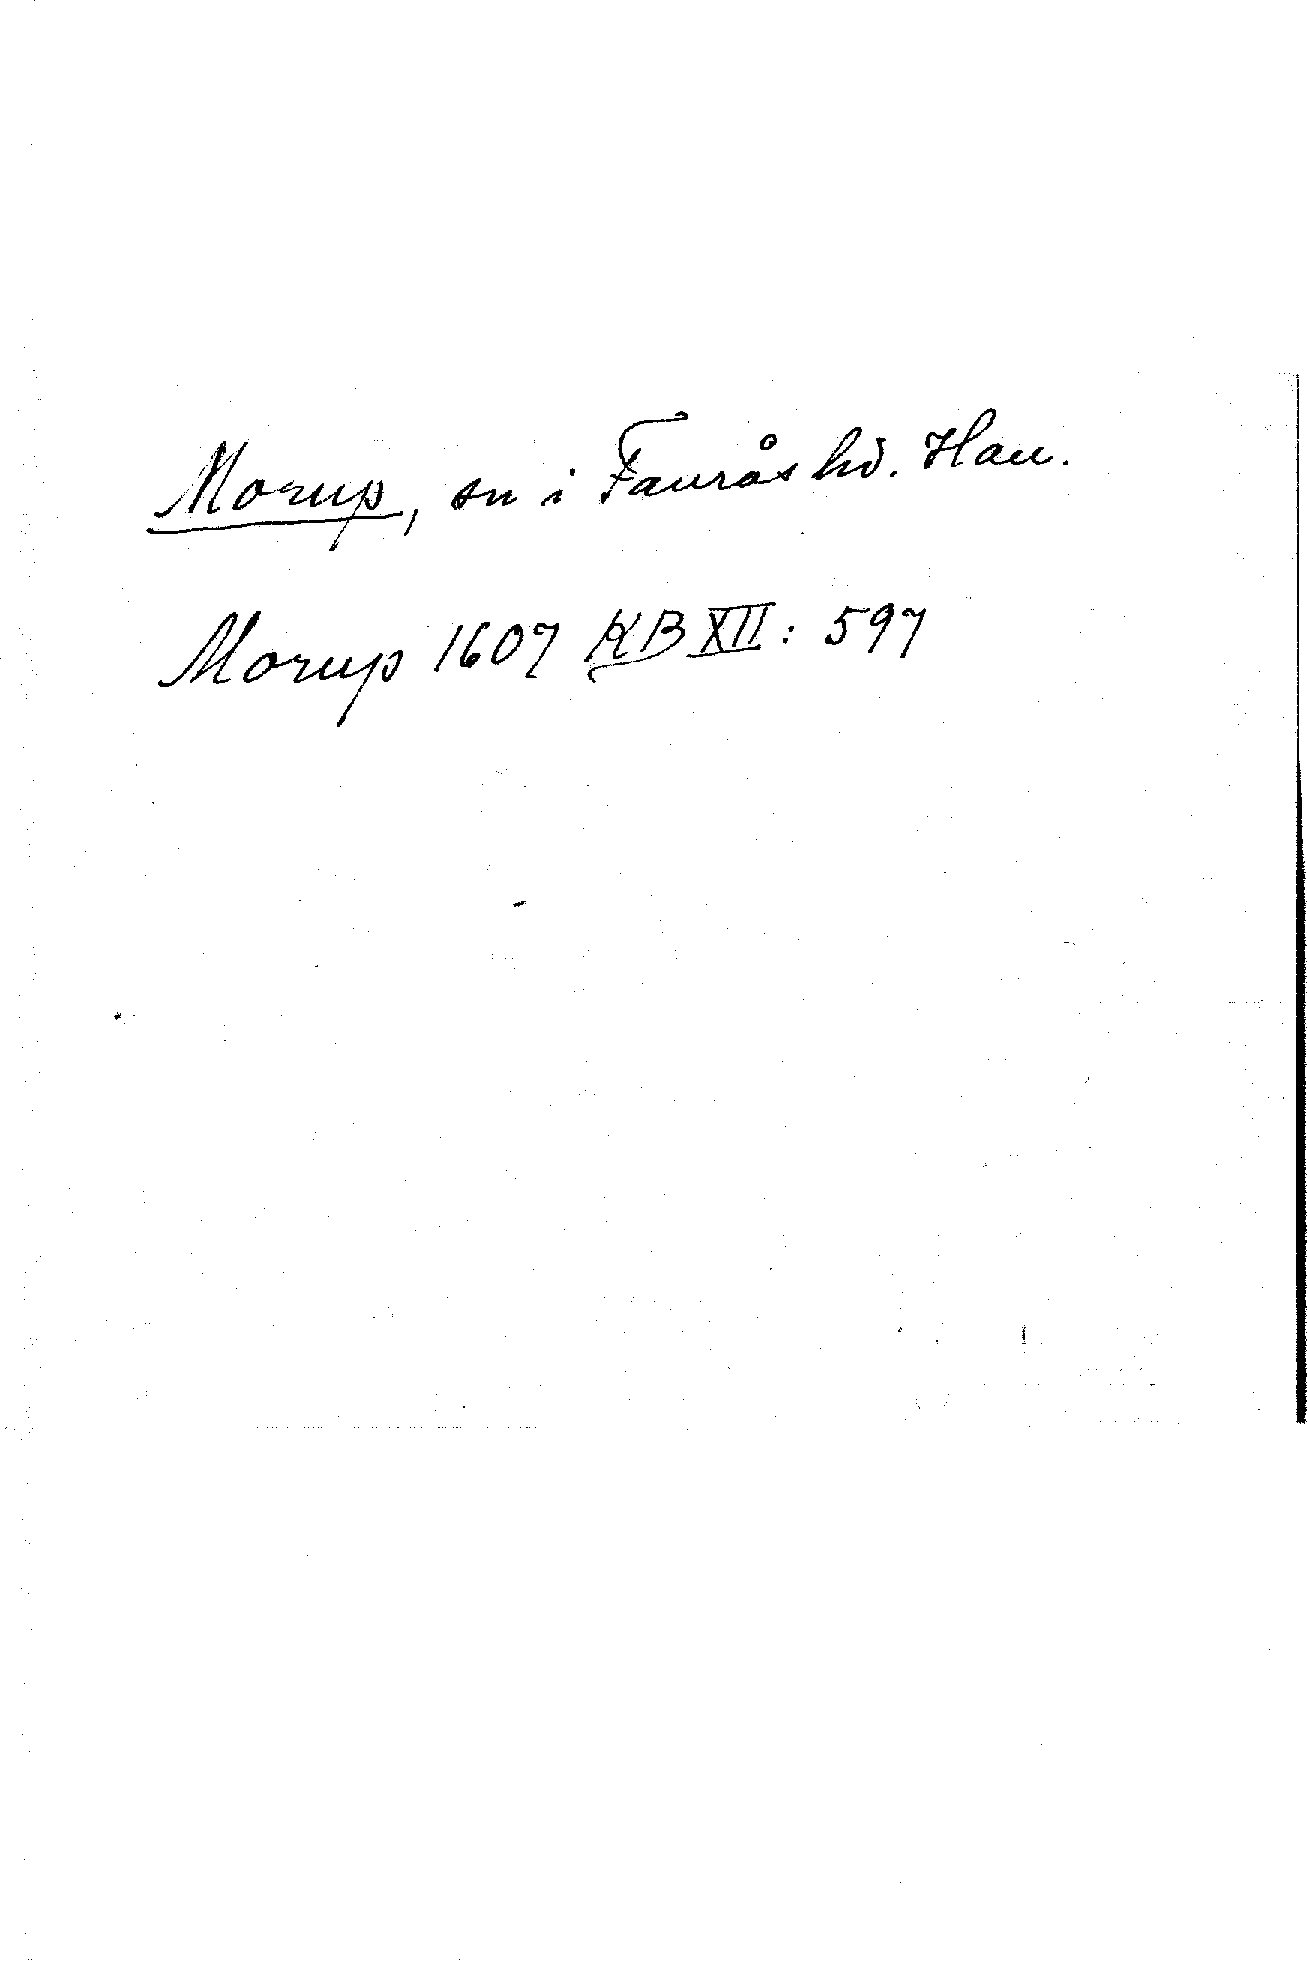 Morup, sn i Faurås hd. Hall.
Morup 1607 KB XII: 597